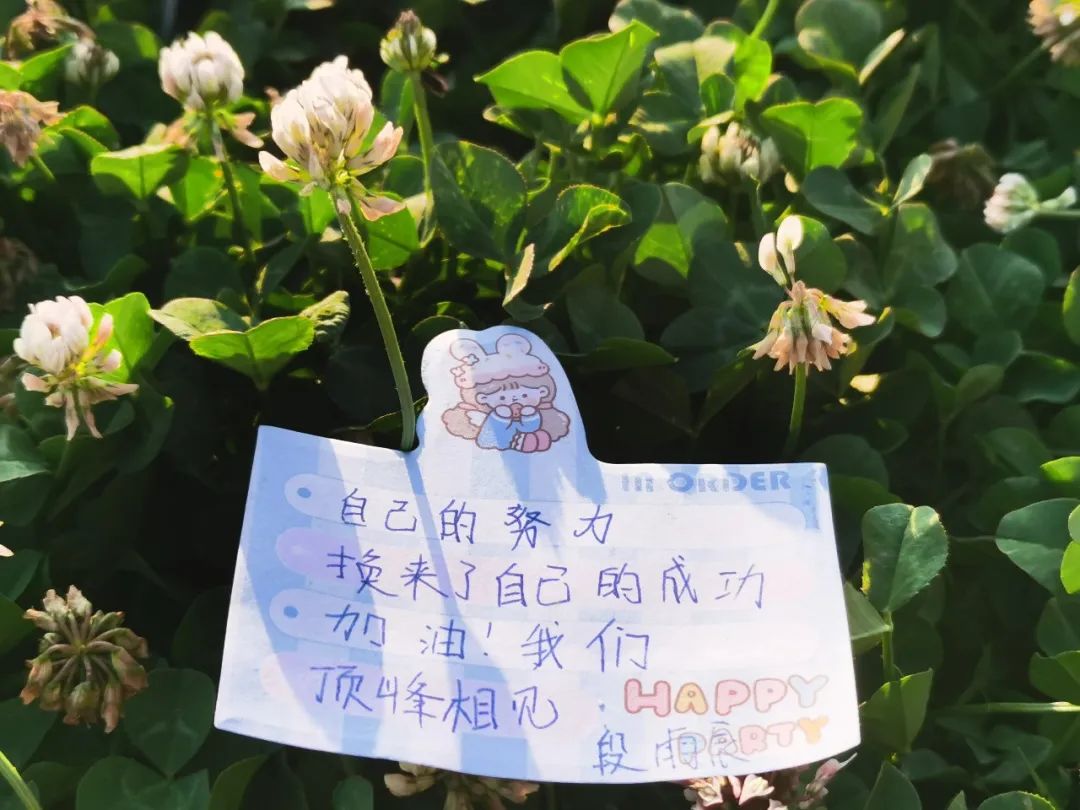 In ORDER
自己的努力
换来了自己的成功
加油！我们
顶峰相见
HAPPY
PARTY
段雨晨